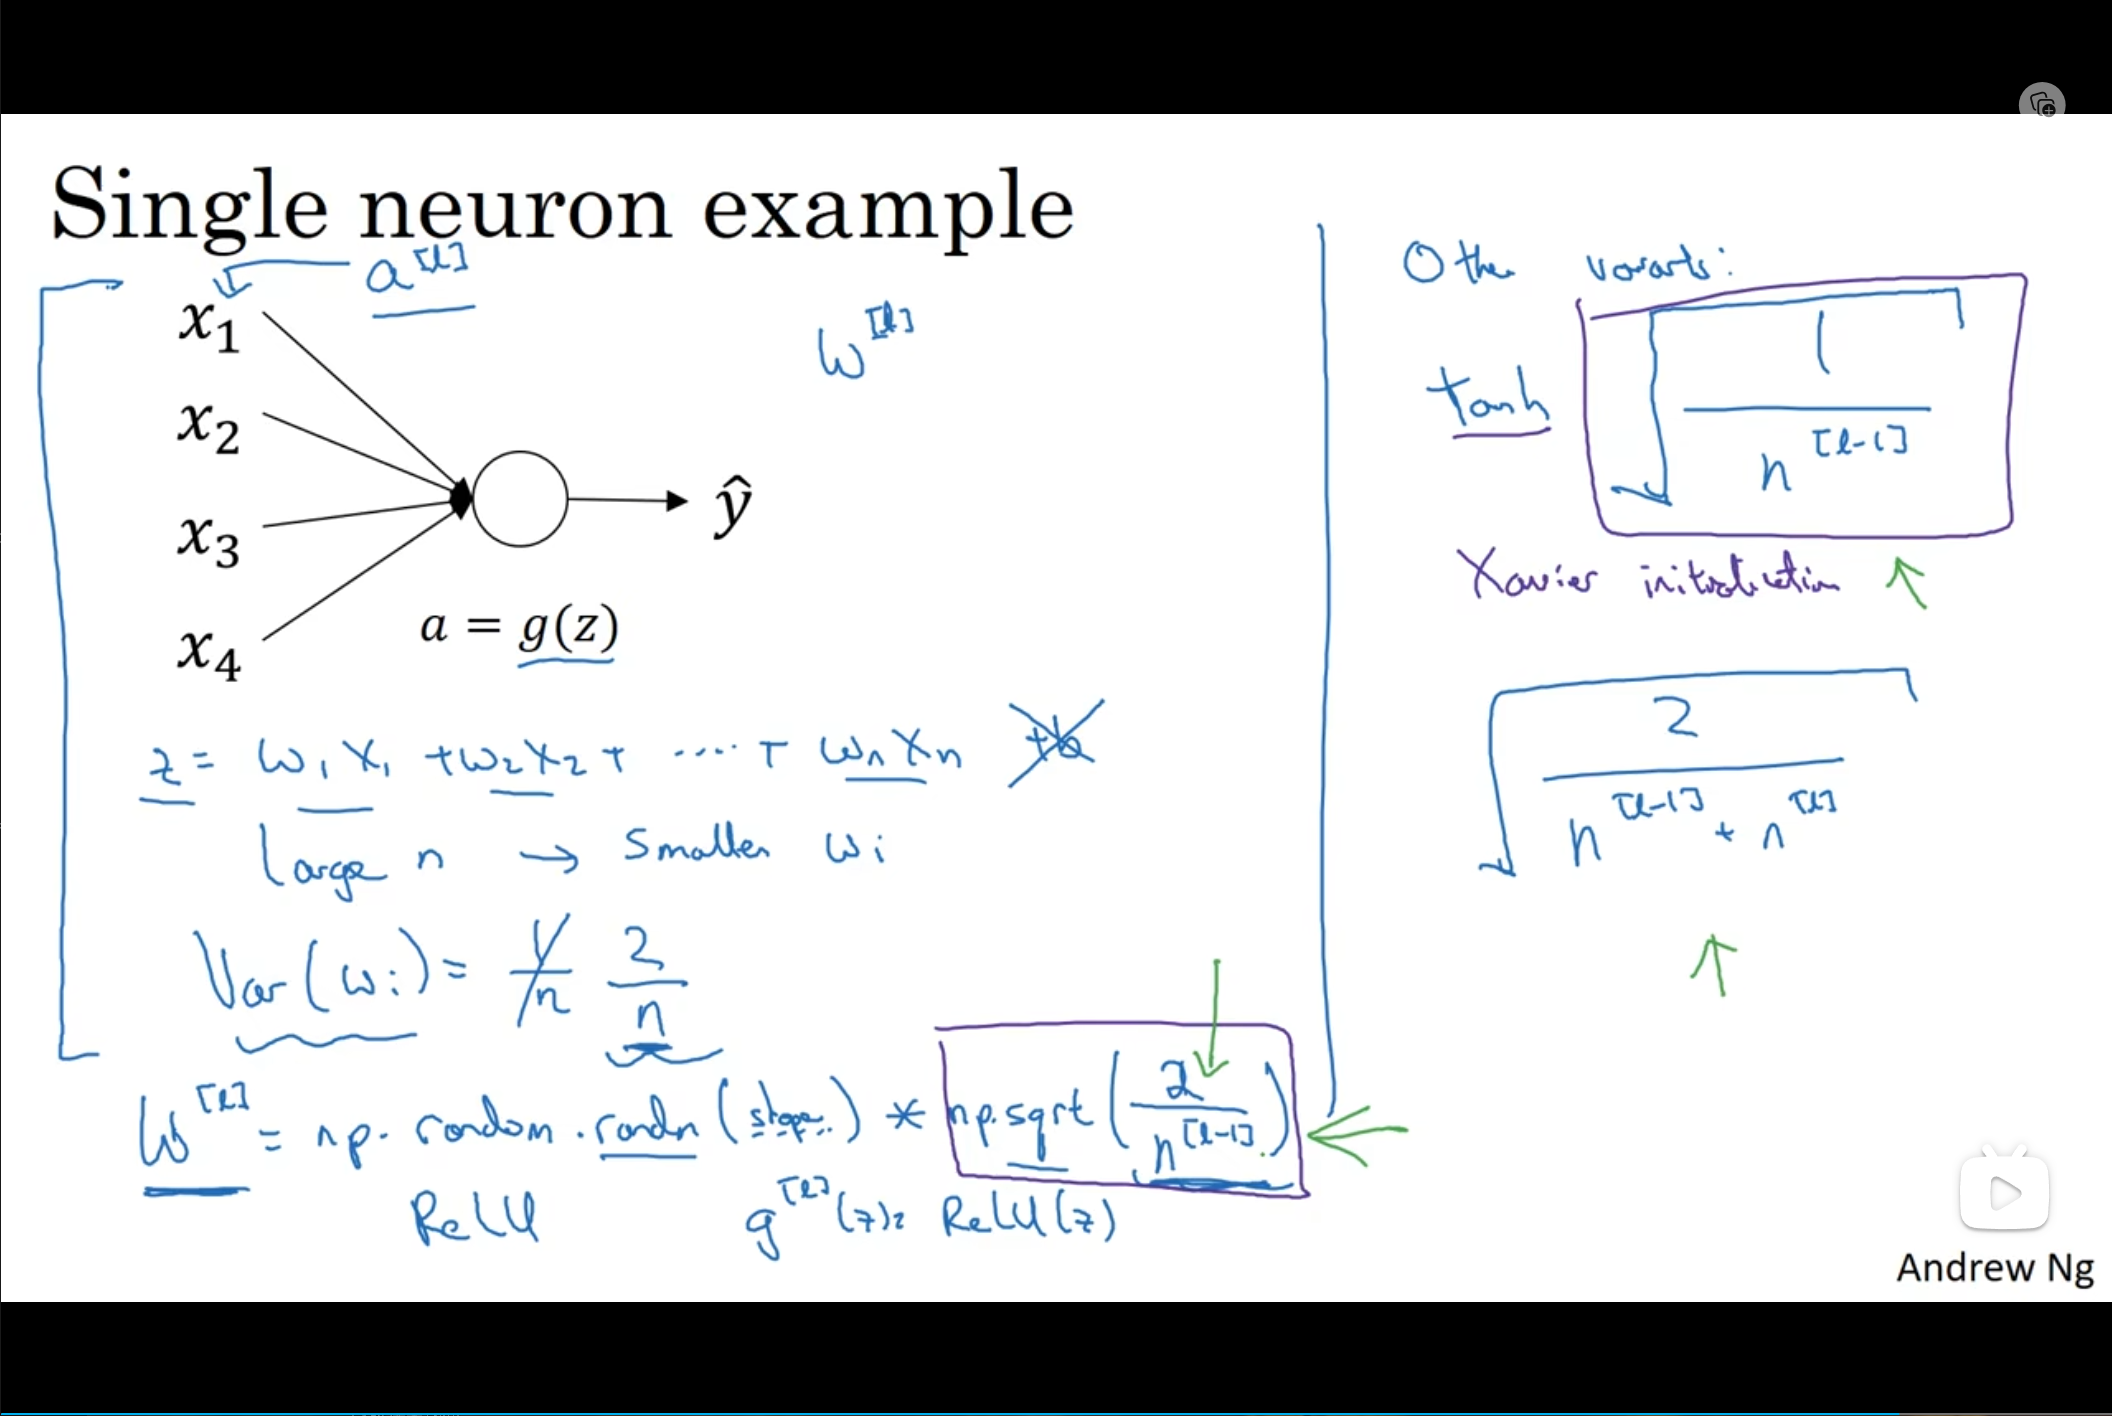 Single neuron example
a^[l]
x₁
x₂
x₃
x₄
W^[l]
ŷ
a = g(z)
z = w₁x₁ + w₂x₂ + .... + wₙxₙ +b
Large n → Smaller wᵢ
Var(wᵢ) = 1/n 2/n
W^[l] = np.random.randn(shape) * np.sqrt(2/n^[l-1])
ReLU g^[l](z) = ReLU(z)
Other variants:
tanh √(1/n^[l-1])
Xavier initialization
√(2/(n^[l-1] + n^[l]))
Andrew Ng